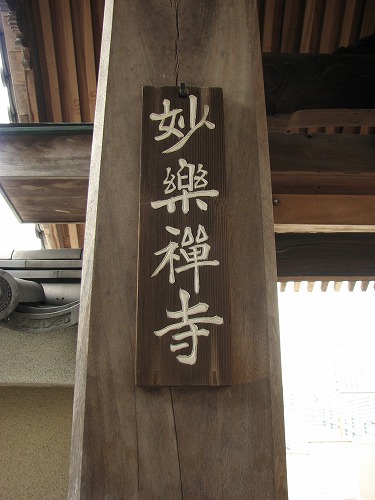 妙樂禪寺